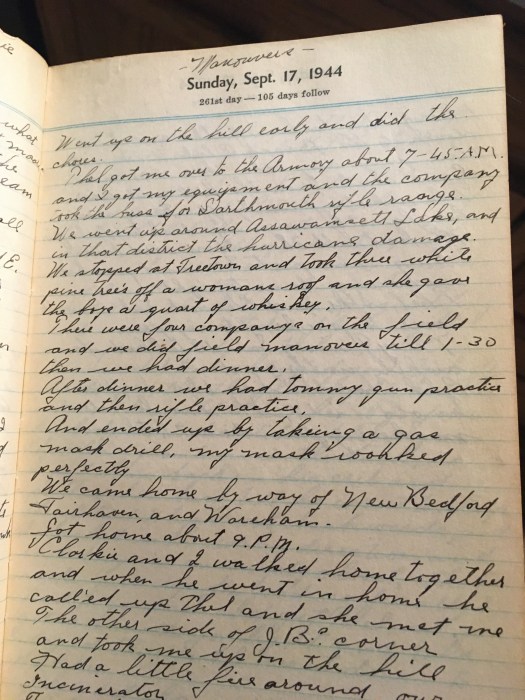 - Manouvers -
Sunday, Sept. 17, 1944
261st day — 105 days follow
Went up on the hill early and did the
chores.
Phel got me over to the Armory about 7-45 A.M.
and I got my equipment and the company
took the buss for Darthmouth rifle range.
We went up around Assawamsett Lake, and
in that district the hurricane damage.
We stopped at Freetown and took three white
pine trees off a womans roof and she gave
the boys a quart of whiskey.
There were four companys on the field
and we did field manovers till 1-30
then we had dinner.
After dinner we had tommy gun practice
and then rifle practice.
And ended up by takeing a gas
mask drill, my mask worked
perfectly
We came home by way of New Bedford
Fairhaven, and Wareham.
Got home about 9.P.M.
Clarkie and I walked home together
and when he went in home he
called up Phel and she met me
The other side of J.B.s corner
and took me up on the hill
Had a little fire around our
Incinerator